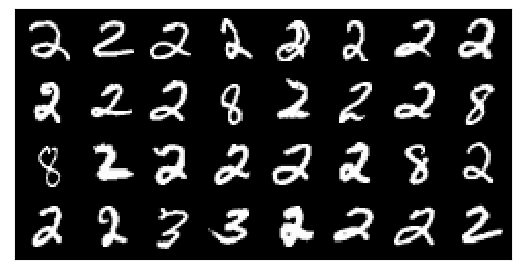 2 2 2 2 2 2 2 2
2 2 2 8 2 2 2 8
8 2 2 2 2 2 8 2
2 2 3 3 2 2 2 2